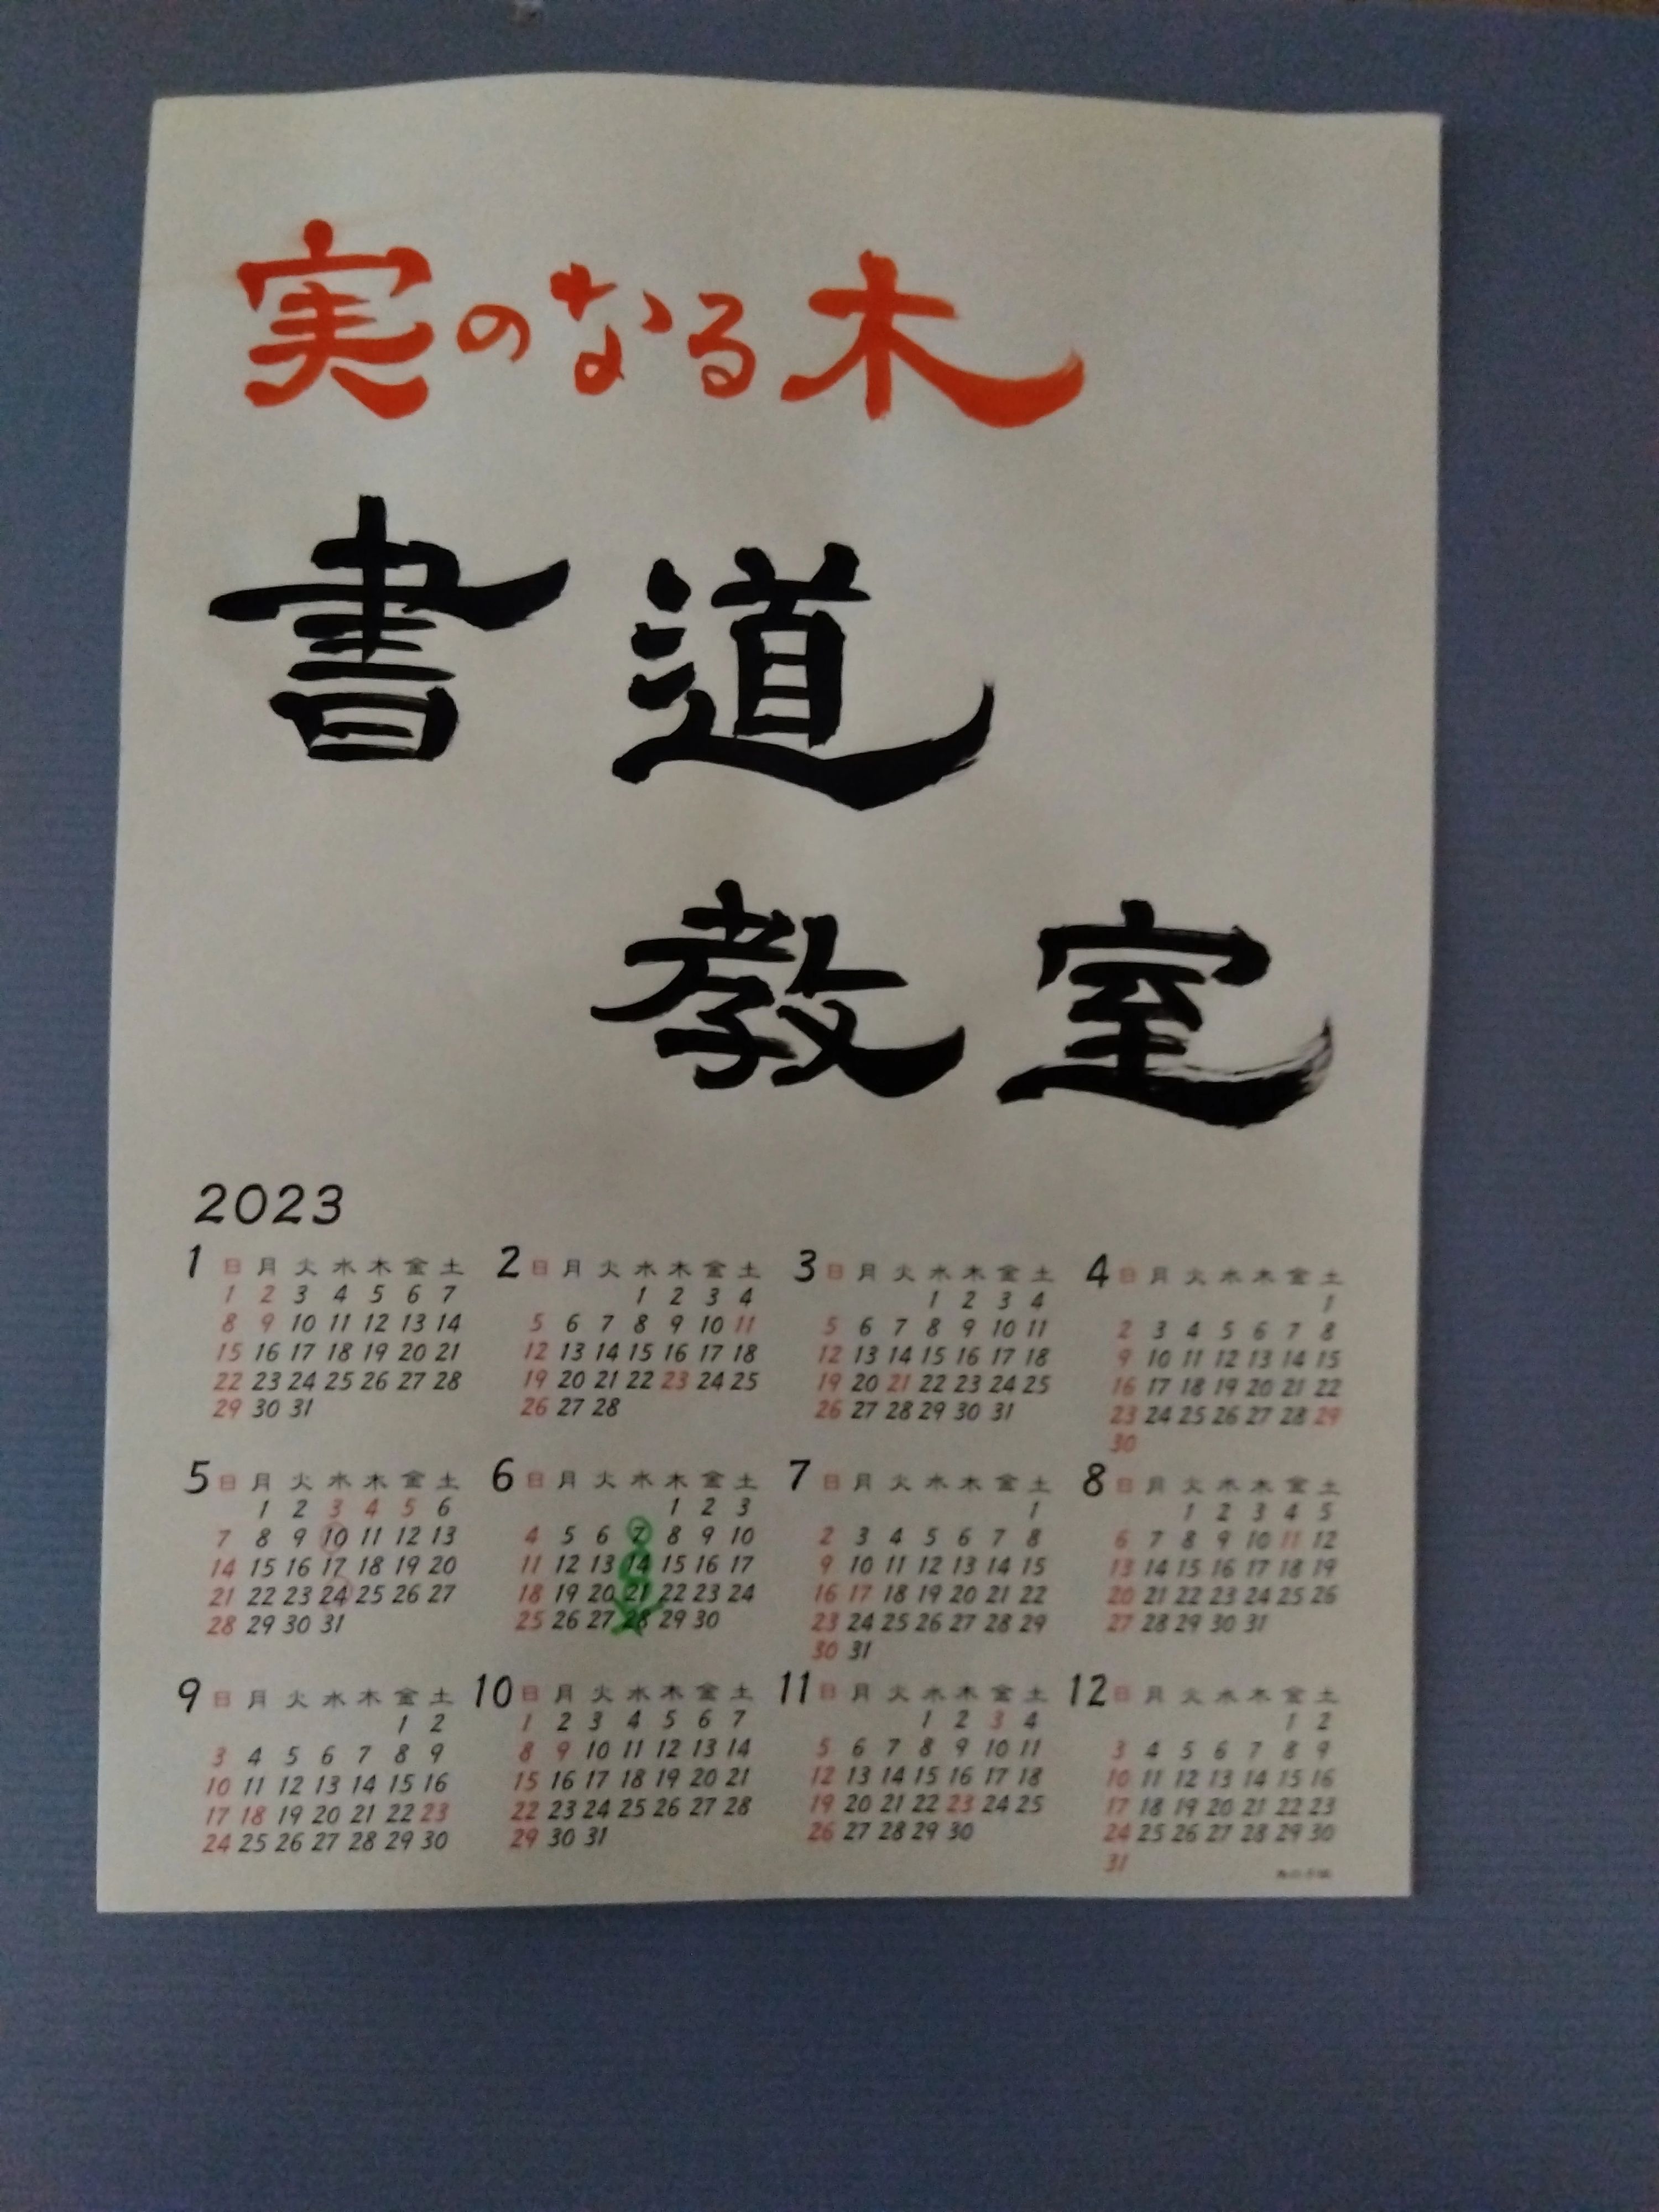 実のなる木
書道
教室
2023
1 日 月 火 水 木 金 土
1 2 3 4 5 6 7
8 9 10 11 12 13 14
15 16 17 18 19 20 21
22 23 24 25 26 27 28
29 30 31
2 日 月 火 水 木 金 土
1 2 3 4
5 6 7 8 9 10 11
12 13 14 15 16 17 18
19 20 21 22 23 24 25
26 27 28
3 日 月 火 水 木 金 土
1 2 3 4
5 6 7 8 9 10 11
12 13 14 15 16 17 18
19 20 21 22 23 24 25
26 27 28 29 30 31
4 日 月 火 水 木 金 土
1
2 3 4 5 6 7 8
9 10 11 12 13 14 15
16 17 18 19 20 21 22
23 24 25 26 27 28 29
30
5 日 月 火 水 木 金 土
1 2 3 4 5 6
7 8 9 10 11 12 13
14 15 16 17 18 19 20
21 22 23 24 25 26 27
28 29 30 31
6 日 月 火 水 木 金 土
1 2 3
4 5 6 7 8 9 10
11 12 13 14 15 16 17
18 19 20 21 22 23 24
25 26 27 28 29 30
7 日 月 火 水 木 金 土
1
2 3 4 5 6 7 8
9 10 11 12 13 14 15
16 17 18 19 20 21 22
23 24 25 26 27 28 29
30 31
8 日 月 火 水 木 金 土
1 2 3 4 5
6 7 8 9 10 11 12
13 14 15 16 17 18 19
20 21 22 23 24 25 26
27 28 29 30 31
9 日 月 火 水 木 金 土
1 2
3 4 5 6 7 8 9
10 11 12 13 14 15 16
17 18 19 20 21 22 23
24 25 26 27 28 29 30
10 日 月 火 水 木 金 土
1 2 3 4 5 6 7
8 9 10 11 12 13 14
15 16 17 18 19 20 21
22 23 24 25 26 27 28
29 30 31
11 日 月 火 水 木 金 土
1 2 3 4
5 6 7 8 9 10 11
12 13 14 15 16 17 18
19 20 21 22 23 24 25
26 27 28 29 30
12 日 月 火 水 木 金 土
1 2
3 4 5 6 7 8 9
10 11 12 13 14 15 16
17 18 19 20 21 22 23
24 25 26 27 28 29 30
31